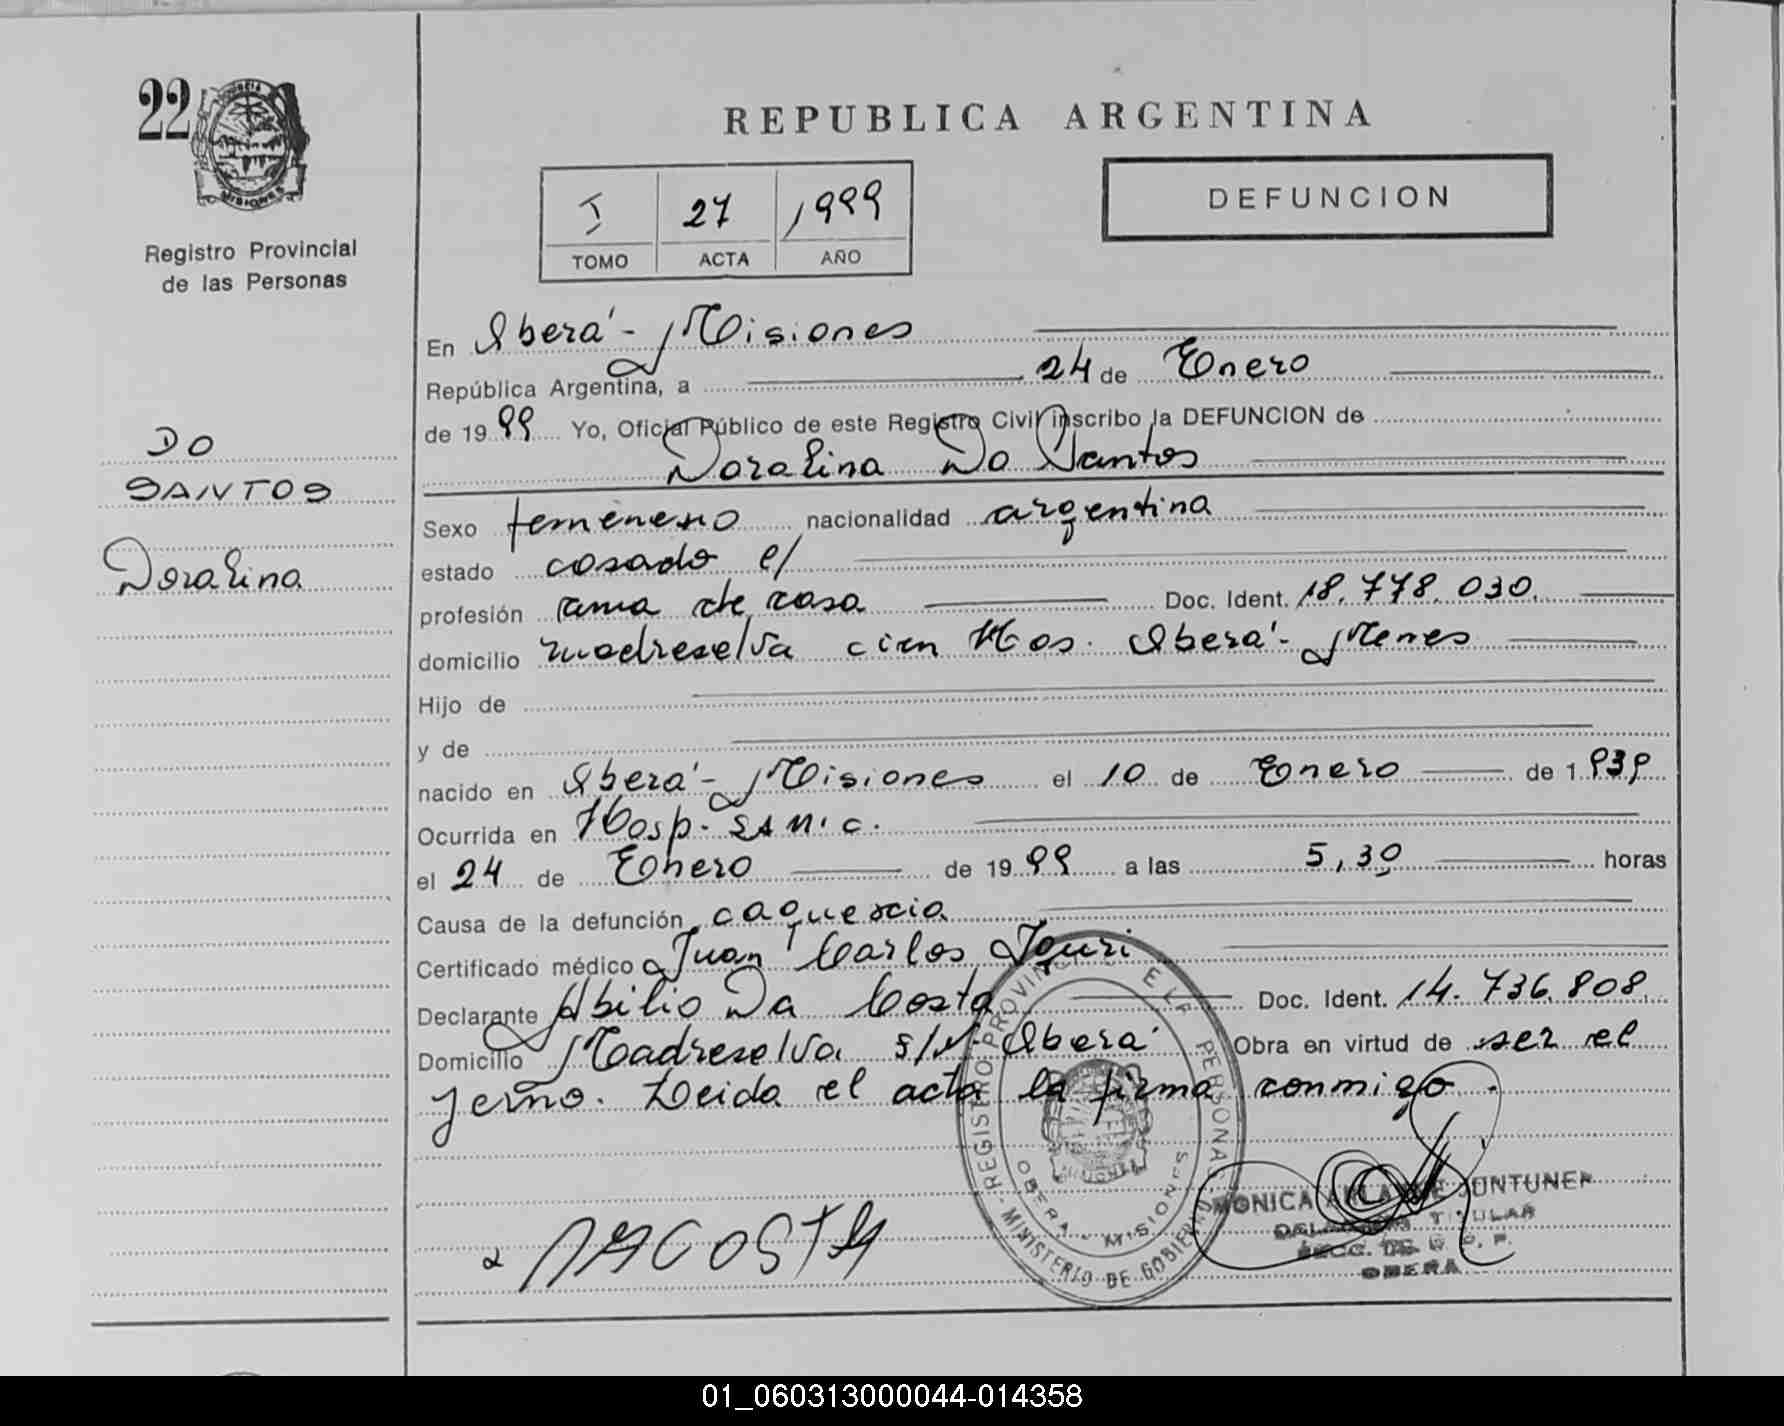 22
Registro Provincial
de las Personas
DO
SANTOS
Doralina
REPUBLICA ARGENTINA
I 27 1999
TOMO ACTA AÑO
DEFUNCION
En Oberá - Misiones
República Argentina, a 24 de Enero
de 1999 Yo, Oficial Público de este Registro Civil inscribo la DEFUNCION de
Doralina Do Santos
Sexo femenino nacionalidad argentina
estado casado
profesión ama de casa Doc. Ident. 18.778.030.
domicilio madreselva cien Oberá - Mnes
Hijo de
y de
nacido en Oberá - Misiones el 10 de Enero de 1939
Ocurrida en Hosp. SAMIC.
el 24 de Enero de 1999 a las 5,30 horas
Causa de la defunción caquexia
Certificado médico Juan Carlos
Declarante Abilio Da Costa Doc. Ident. 14.736.808
Domicilio Madreselva s/Nº Oberá Obra en virtud de ser el
yerno. Leida el acta la firma conmigo.
REGISTRO PROVINCIAL DE LAS PERSONAS
MINISTERIO DE GOBIERNO
OBERA - MISIONES
DACOSTA
MONICA
TITULAR
OBERA
01_060313000044-014358